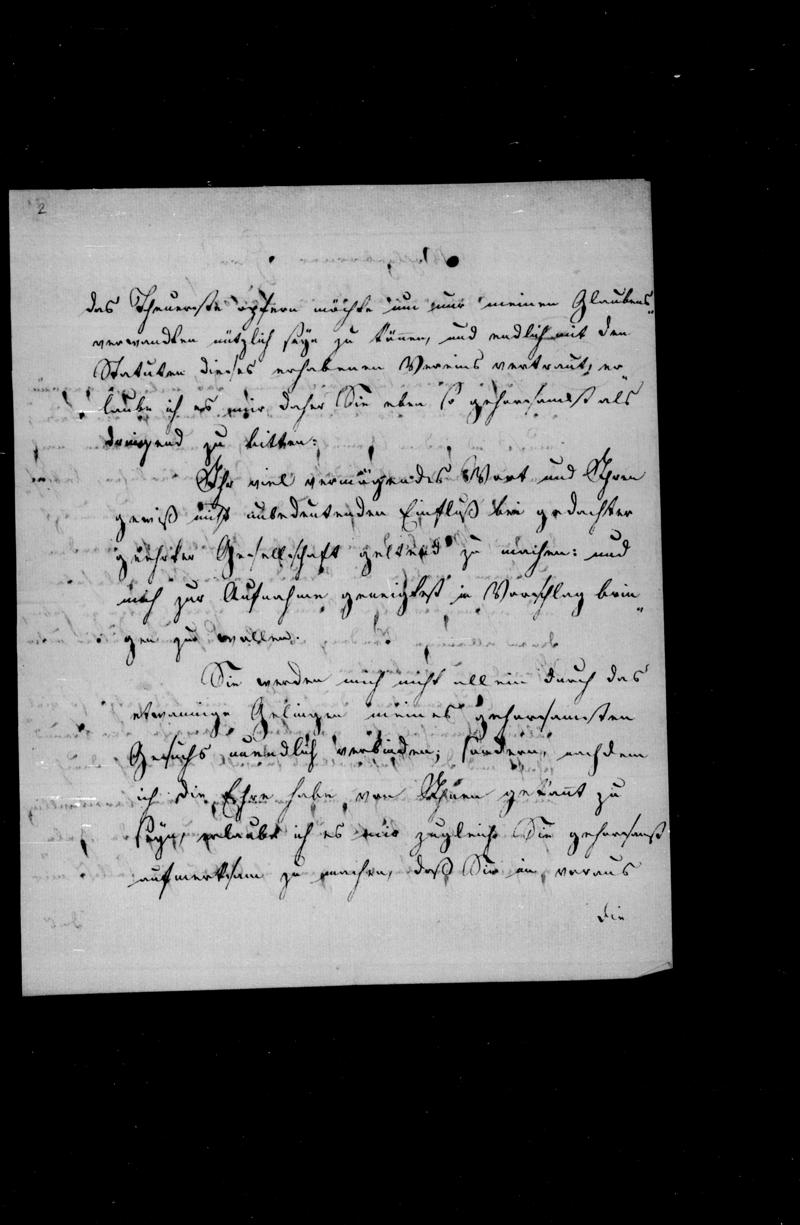 2
das Theuerste opfern möchte um nur meinen Glaubens„
verwandten nützlich seyn zu können, und endlich mit den
Statuten dieses erhabenen Vereins vertraut, er„
laube ich es mir daher Sie eben so gehorsamst als
dringend zu bitten:
Ihr viel vermögendes Wort und Ihren
gewiß nicht unbedeutenden Einfluß bei gedachter
geehrter Gesellschaft geltend zu machen: und
mich zur Aufnahme geneigtest in Vorschlag brin„
gen zu wollen.
Sie werden mich nicht allein durch das
etwannige Gelingen meines gehorsamsten
Gesuchs unendlich verbinden; sondern, nachdem
ich die Ehre habe von Ihnen gekannt zu
seyn, erlaube ich es mir zugleich Sie gehorsamst
aufmerksam zu machen, daß Sie im voraus
die